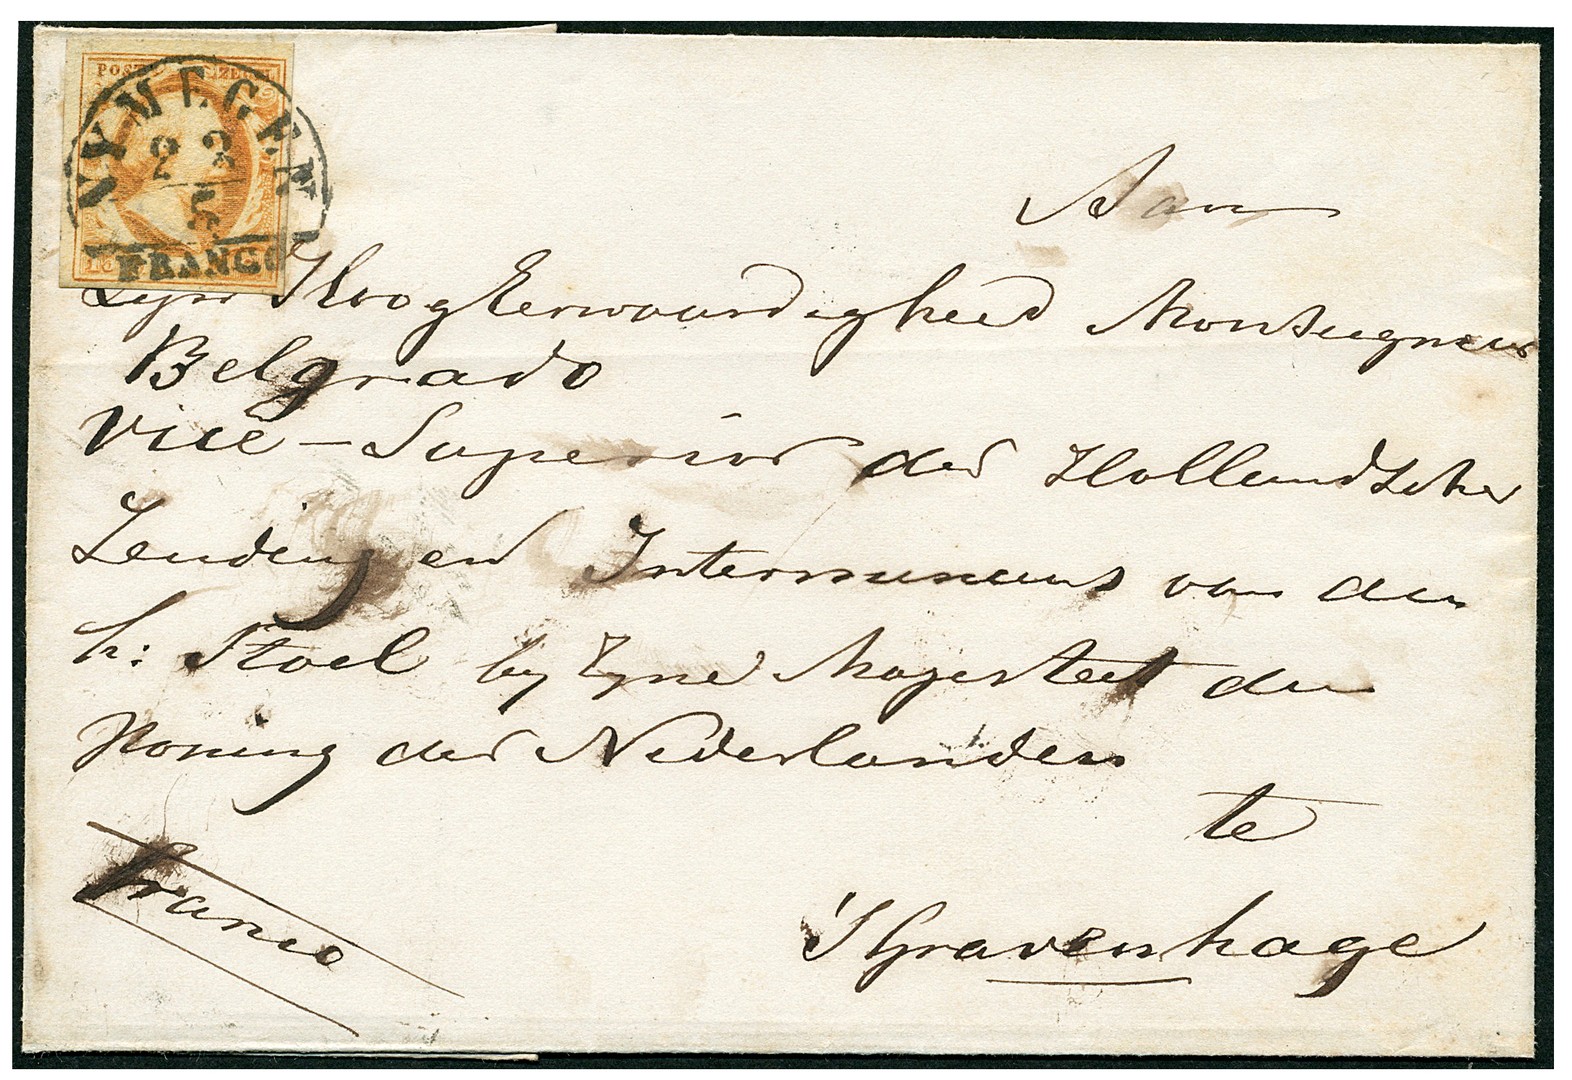 POSTZEGEL
NYMEGEN
22
5
FRANCO
Aan
Zyn HoogEerwaardigheid Monseigneur
Belgrado
Vice-Superior der Hollandsche
Zending en Internuncius van den
h: Stoel by Zyne Majesteit den
Koning der Nederlanden
te
's Gravenhage
franco